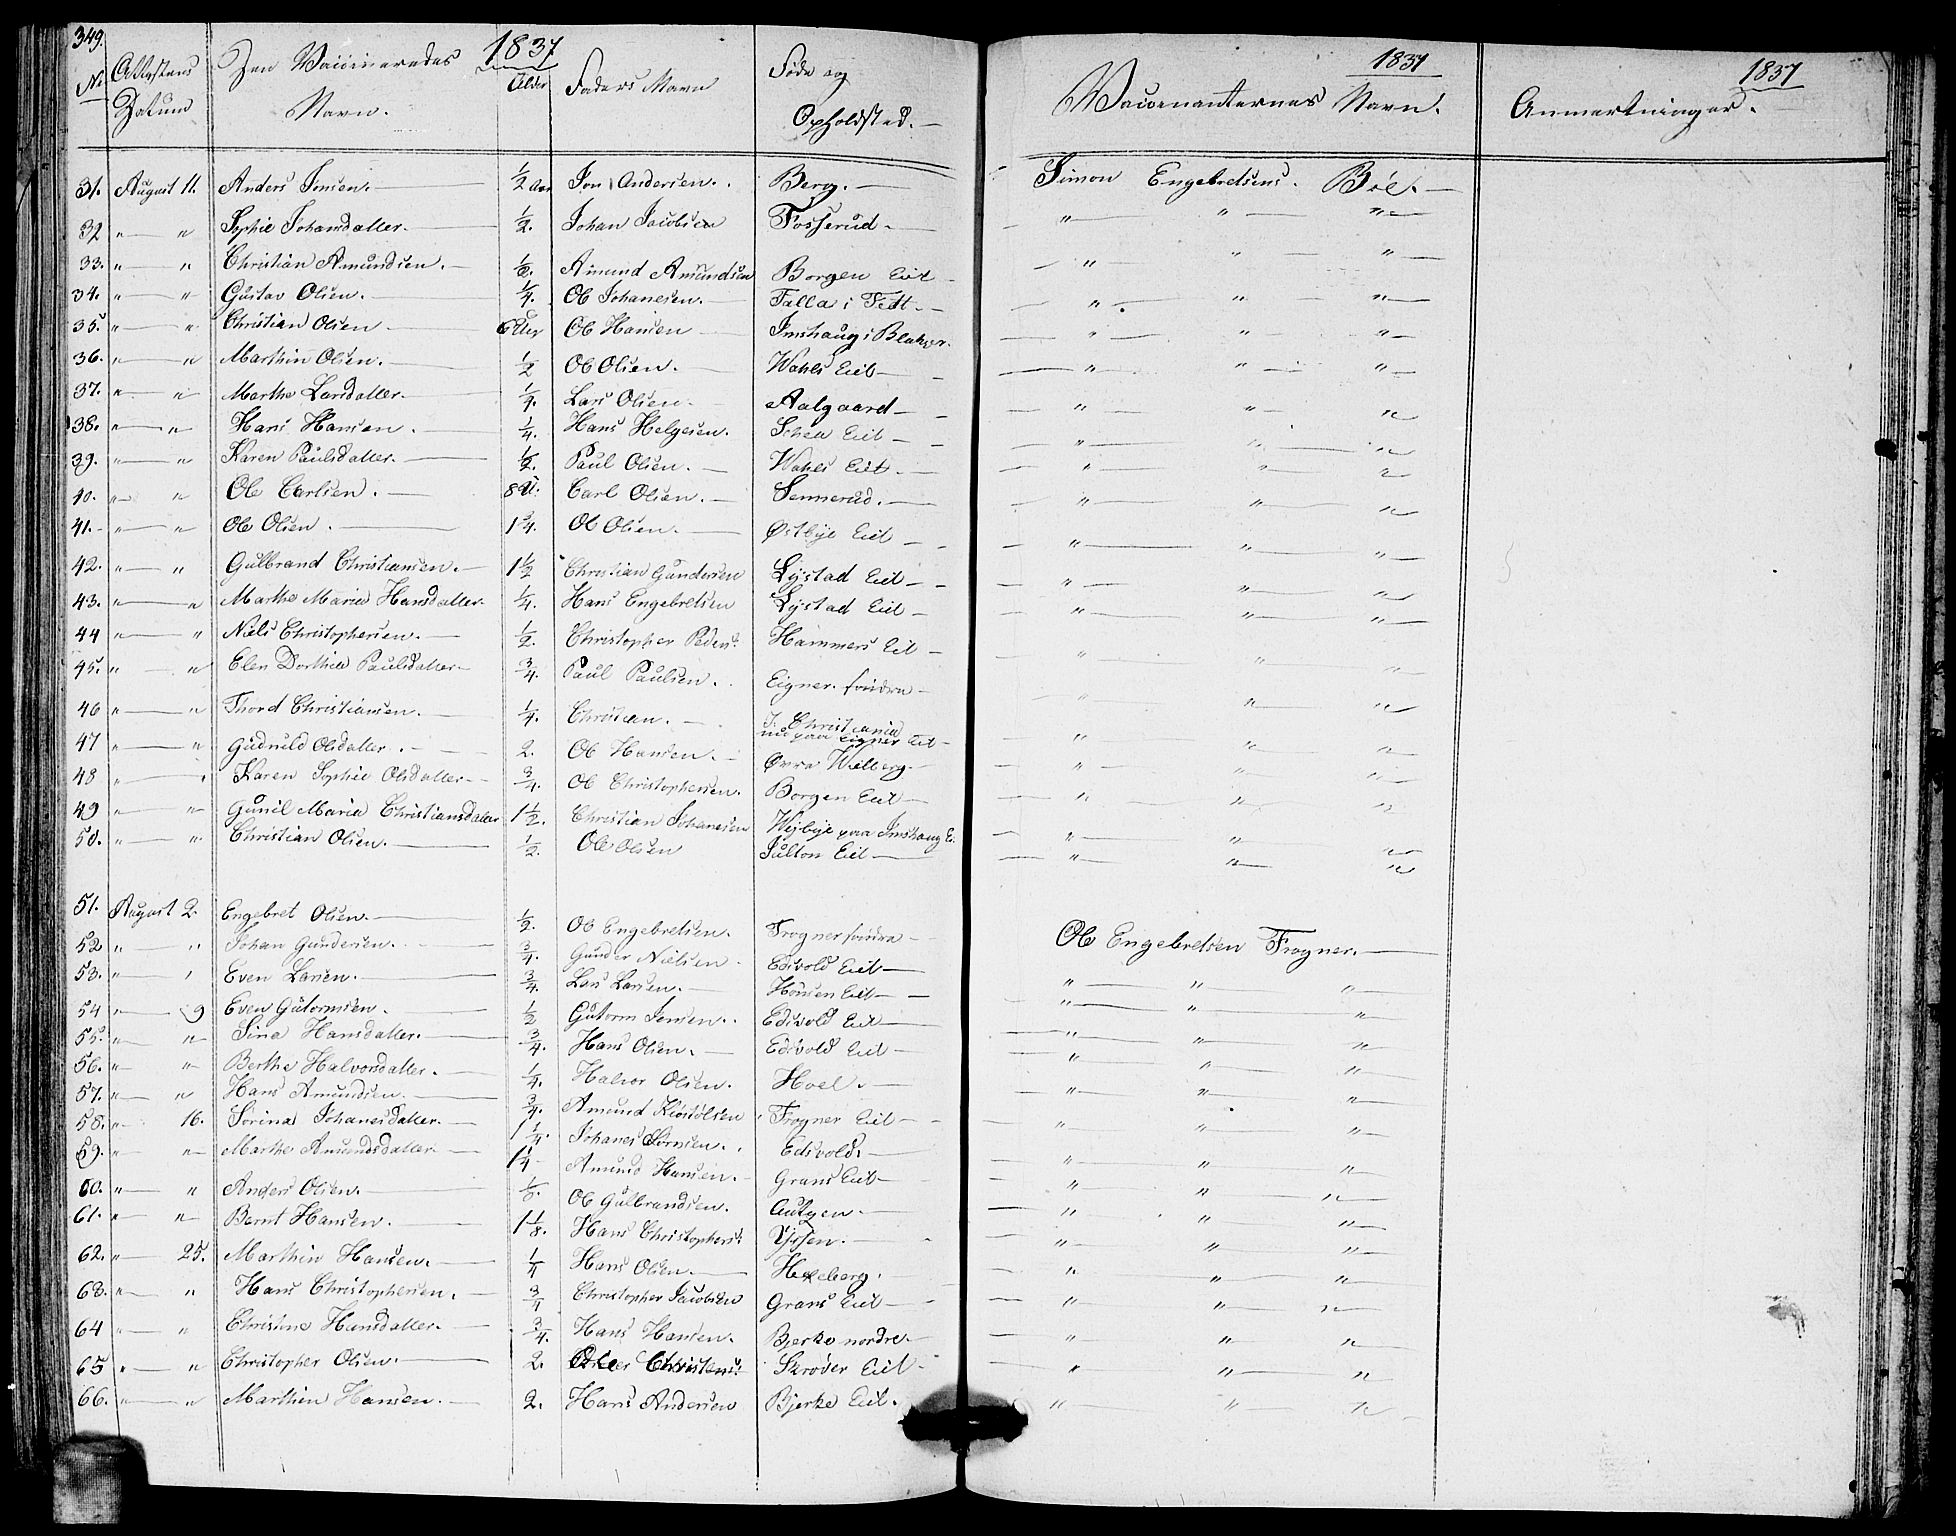 349.
1837
1837
1837
No Attestens Datum Den Vaccineredes Navn. Alder Faders Navn Føde og Opholdsted. Vaccinanternes Navn. Anmerkninger.
31. August 11. Anders Jonsen. ½ Aar Jon Andersen. Berg. Simon Engebretsens. Böe.
32 " " Sophie Johansdatter. ½. Johan Jacobsen Fosserud. " " "
33. " " Christian Amundsen. ½. Amund Amundsen Borgen Eie " " "
34. " " Gustav Olsen. ¼. Ole Johanesen. Falla i Fedt. " " "
35. " " Christian Olsen 6 Uger Ole Hansen Imshaug i Blaker. " " "
36. " " Marthin Olsen. ½ Ole Olsen. Wahls Eiet " " "
37. " " Marthe Larsdatter. ¼. Lars Olsen. Aalgaard " " "
38. " " Hans Hansen. ¼. Hans Helgesen. Schea Eiet " " "
39. " " Karen Paulsdatter. ½. Paul Olsen. Wahls Eiet. " " "
40. " " Ole Carlsen. 8 U. Carl Olsen. Sennerud. " " "
41. " " Ole Olsen. 1¾. Ole Olsen. Østbye Eiet " " "
42. " " Gulbrand Christiansen. 1½ Christian Gundersen Lystad Eiet " " "
43. " " Marthe Maria Hansdatter. ¼. Hans Engebretsen Lystad Eiet " " "
44 " " Niels Christophersen. ½. Christopher Peders. Hammers Eiet " " "
45. " " Elen Dorthea Paulsdatter ¾. Paul Paulsen. Eigner søndre " " "
46 " " Thord Christiansen. ¼. Christian. I Christiania nu paa Eigner Eiet " " "
47 " " Gudnild Olsdatter. 2. Ole Hansen. Øvre Wilberg. " " "
48 " " Karen Sophie Olsdatter ¾. Ole Christophersen. Borgen Eiet " " "
49 " " Gunil Maria Christiansdatter 1½. Christian Johanesen Wejbye paa Imshaug Ei. " " "
50. " " Christian Olsen. ½. Ole Olsen Julton Eiet " " "
51. August 2. Engebret Olsen. ½. Ole Engebretsen. Frogner søndre Ole Engebretsen Frogner.
52 " " Johan Gundersen. ¾. Gunder Nielsen Edsvold Eiet " " "
53. " " Even Larsen. ¾. Lars Larsen. Hønsen Eiet " " "
54 " 9 Even Gutormsen. ½ Gutorm Jensen. Edsvold Eiet " " "
55. " " Sina Hansdatter. ¾. Hans Olsen. Edsvold Eiet " " "
56. " " Berthe Halvorsdatter. ¼. Halvor Olsen. Hoel. " " "
57. " " Hans Amundsen ¾. Amund Kiøstølsen Frogner Eiet " " "
58. " 16. Sørina Johanesdatter. 1¼. Johanes Sørnsen. Edsvold. " " "
59. " " Marthe Amundsdatter 1¼ Amund Hansen. Grans Eiet " " "
60. " " Anders Olsen. Ole Gulbrandsen. " " "
61. " " Bernt Hansen. 1⅛. Hans Christophers. " " "
62. " 25. Marthin Hansen. ¼ Hans Olsen. Hexeberg. " " "
63. " " Hans Christophersen. ¾ Christopher Jacobsen Grans Eiet " " "
64 " " Christine Hansdatter. ¾. Hans Hansen. Bjerke nordre. " " "
65 " " Christopher Olsen. 2. Ole Christens. Skrøver Eiet " " "
66. " " Marthin Hansen. 2. Hans Andersen Bjerke Eiet. " " "